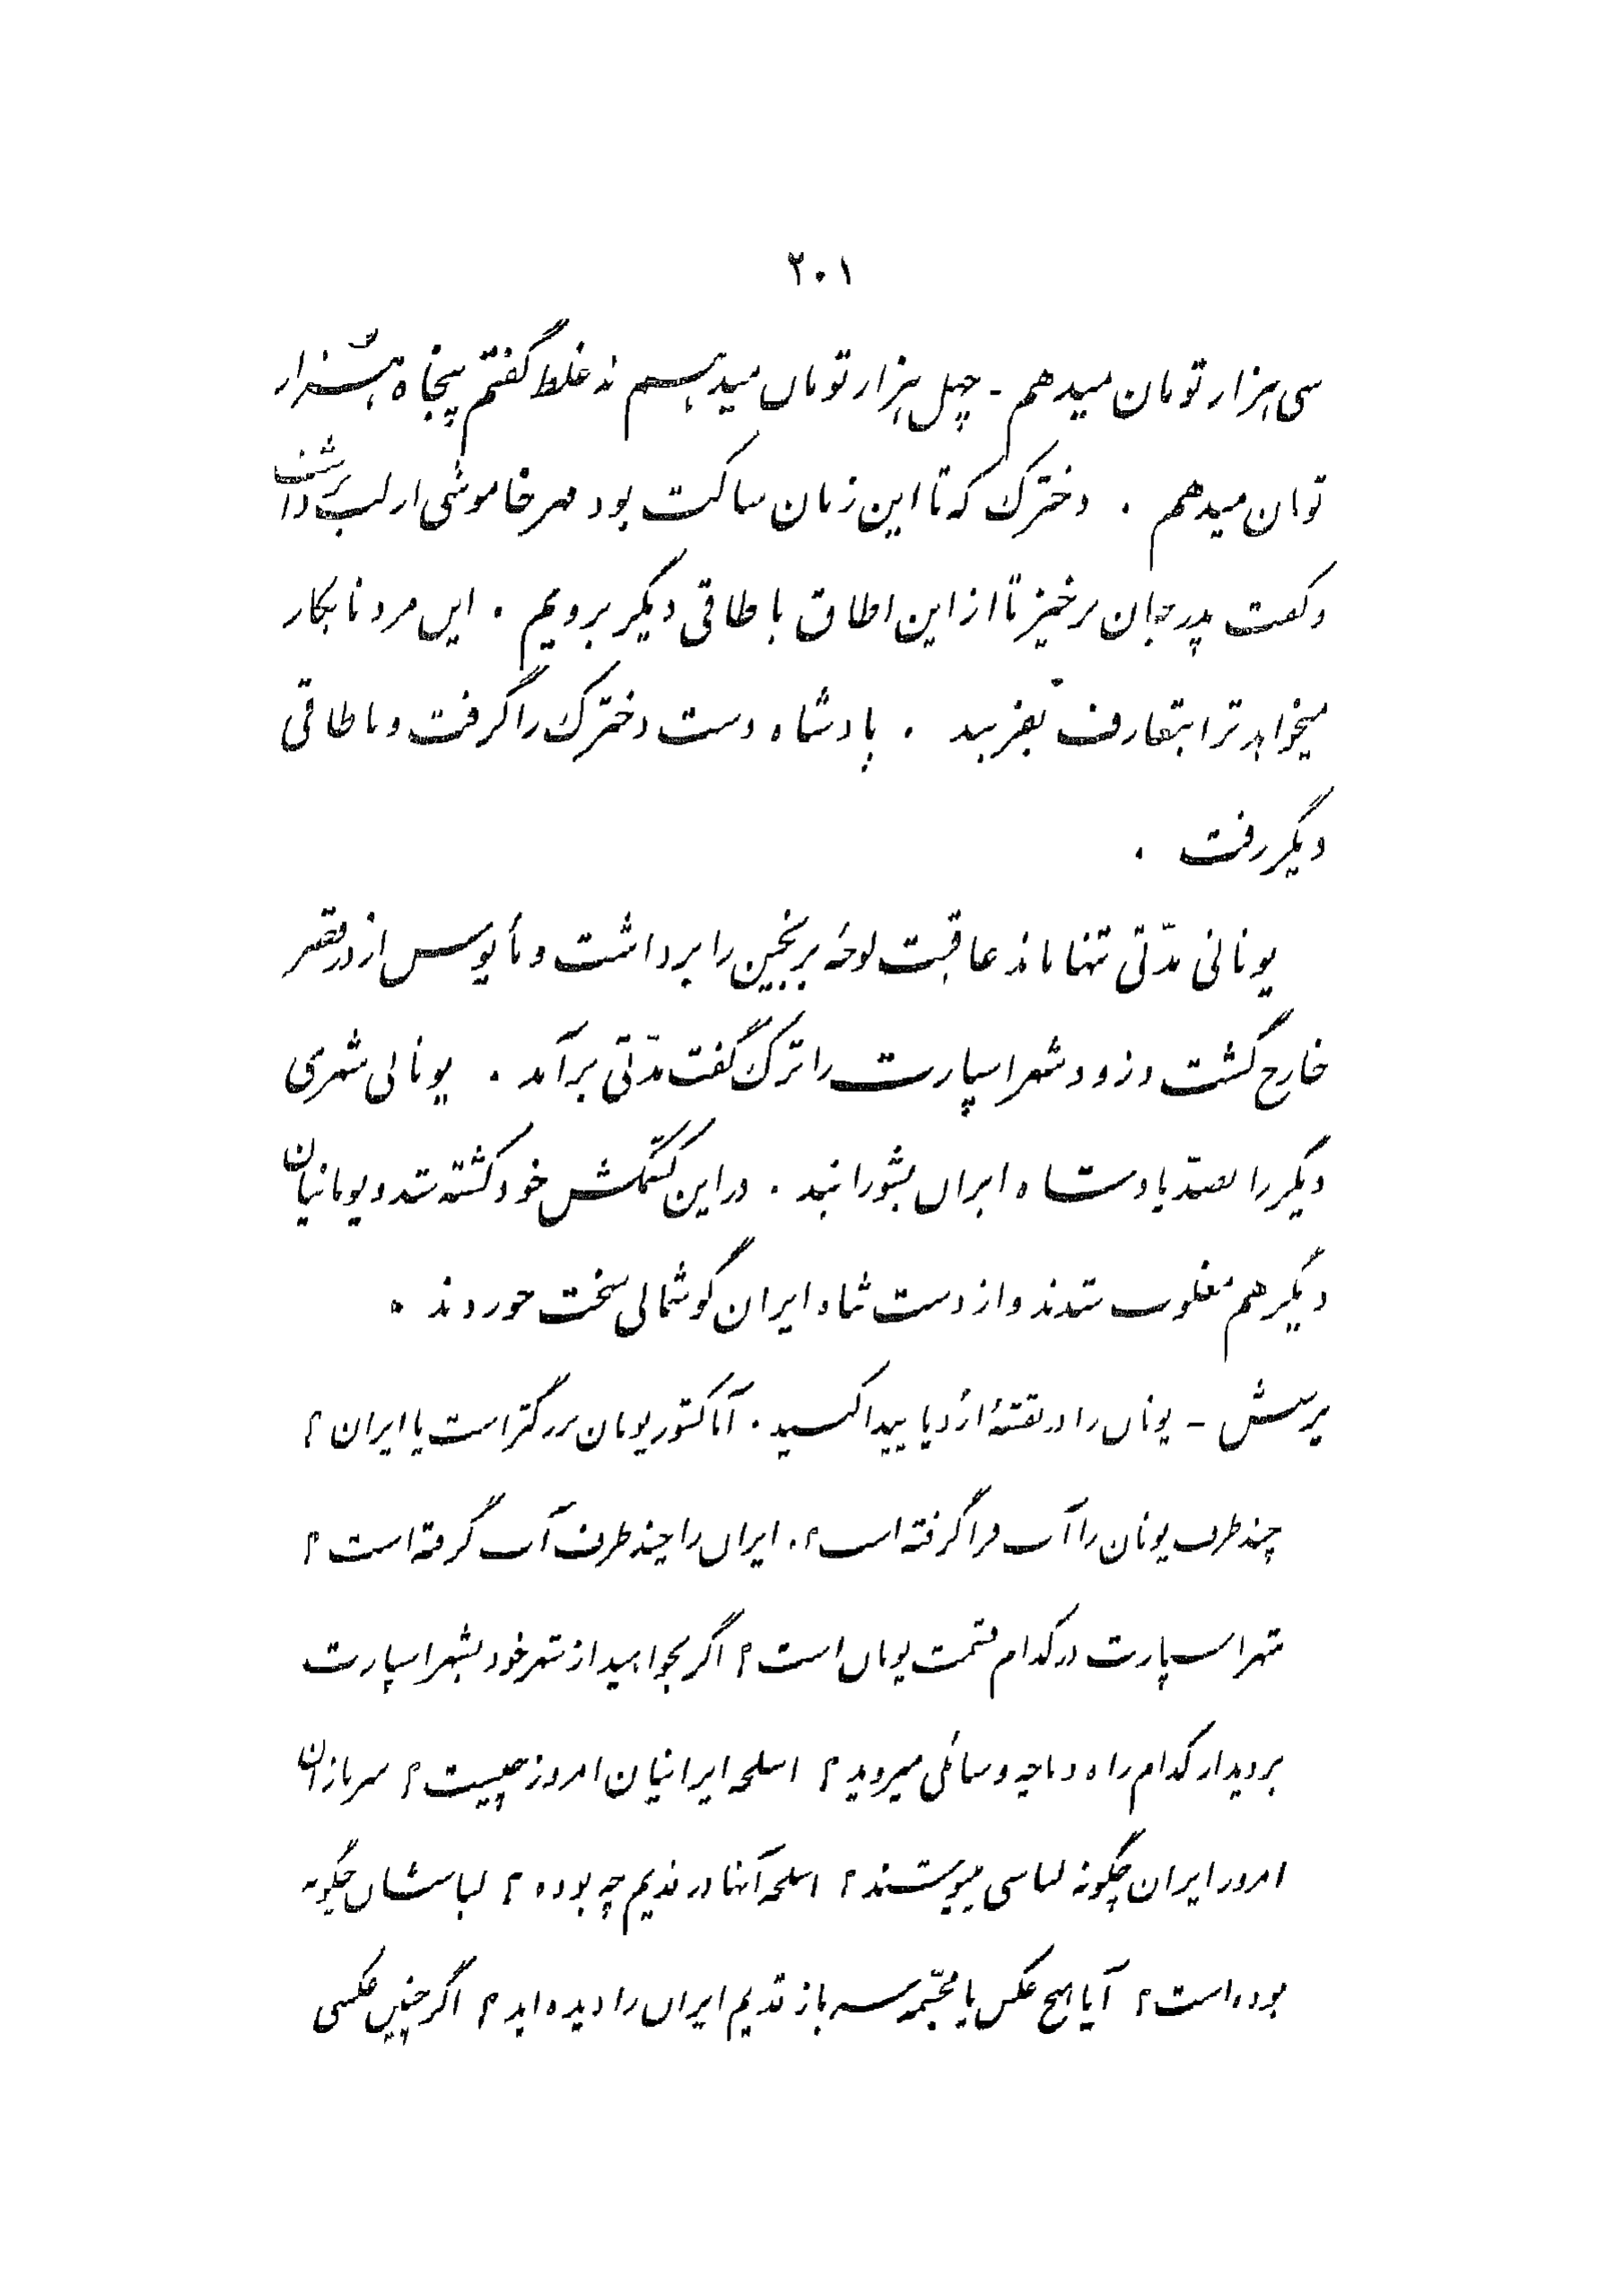 ۲۰۱
سی هزار تومان میدهم - چهل هزار تومان میدهم نه غلط گفتم پنجاه هزار
تومان میدهم . دخترک که تا این زمان ساکت بود مهر خاموشی از لب برداشت
و گفت پدر جان برخیز تا از این اطاق باطاقی دیگر برویم . این مرد نابکار
میخواهد ترا بتعارف بفریبد . پادشاه دست دخترک را گرفت و باطاقی
دیگر رفت .
یونانی مدّتی تنها ماند عاقبت لوحهٔ برنجین را برداشت و مأیوس از در قصر
خارج گشت و زود شهر اسپارت را ترک گفت مدّتی برآمد . یونانی شهری
دیگر را بضدّ پادشاه ایران بشورانید . در این کشمکش خود کشته شد و یونانیان
دیگر هم مغلوب شدند و از دست شاه ایران گوشمالی سخت خوردند .
پرسش - یونان را در نقشهٔ اُرُوپا پیدا کنید . آیا کشور یونان بزرگتر است یا ایران ؟
چند طرف یونان را آب فرا گرفته است ؟ . ایران را چند طرف آب گرفته است ؟
شهر اسپارت در کدام قسمت یونان است ؟ اگر بخواهید از شهر خود بشهر اسپارت
بروید از کدام راه و با چه وسائلی میروید ؟ اسلحه ایرانیان امروز چیست ؟ سربازان
امروز ایران چگونه لباسی میپوشند ؟ اسلحه آنها در قدیم چه بوده ؟ لباسشان چگونه
بوده است ؟ آیا هیچ عکس یا مجسّمه سرباز قدیم ایران را دیده اید ؟ اگر چنین عکسی